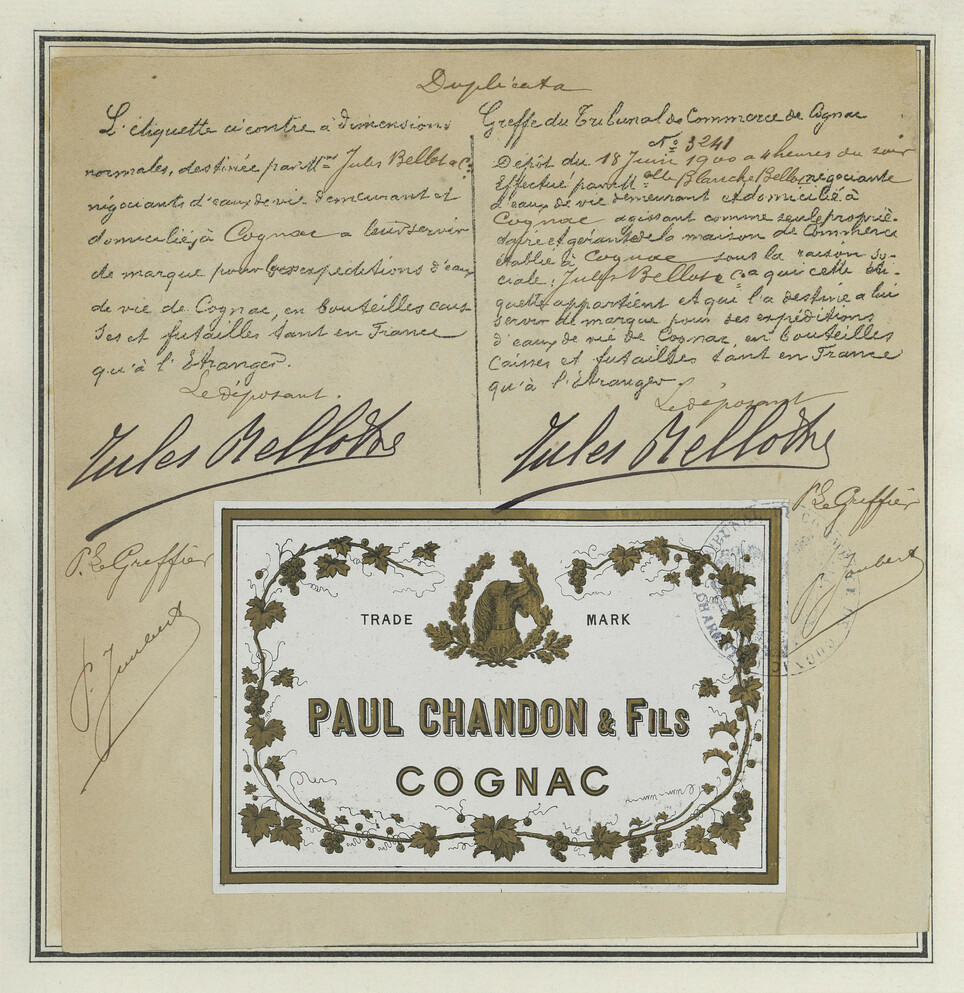 Duplicata
L'étiquette ci contre à dimensions
normales, destinée par Mrs Jules Bellot & Co
négociants d'eaux de vie demeurant et
domiciliés à Cognac a leur servir
de marque pour leurs expeditions d'eaux
de vie de Cognac, en bouteilles cais
ses et futailles tant en France
qu'à l'Etranger.
Le déposant.
Jules Bellot & Co
P. Le Greffier
Greffe du Tribunal de Commerce de Cognac
No 3241
Dépôt du 18 Juin 1900 a 4 heures du soir
Effectué par Melle Blanche Bellot négociante
d'eaux de vie demeurant et domicilié à
Cognac agissant comme seule proprié-
taire et gérante de la maison de Commerce
établie à Cognac sous la raison so-
ciale: Jules Bellot & Co a qui cette éti-
quette appartient et qui l'a destinée a lui
servir de marque pour ses expéditions
d'eaux de vie de Cognac, en bouteilles
Caisses et futailles tant en France
qu'à l'Etranger.
Le déposant
Jules Bellot & Co
P. Le Greffier
P. Joubert
TRADE MARK
PAUL CHANDON & FILS
COGNAC